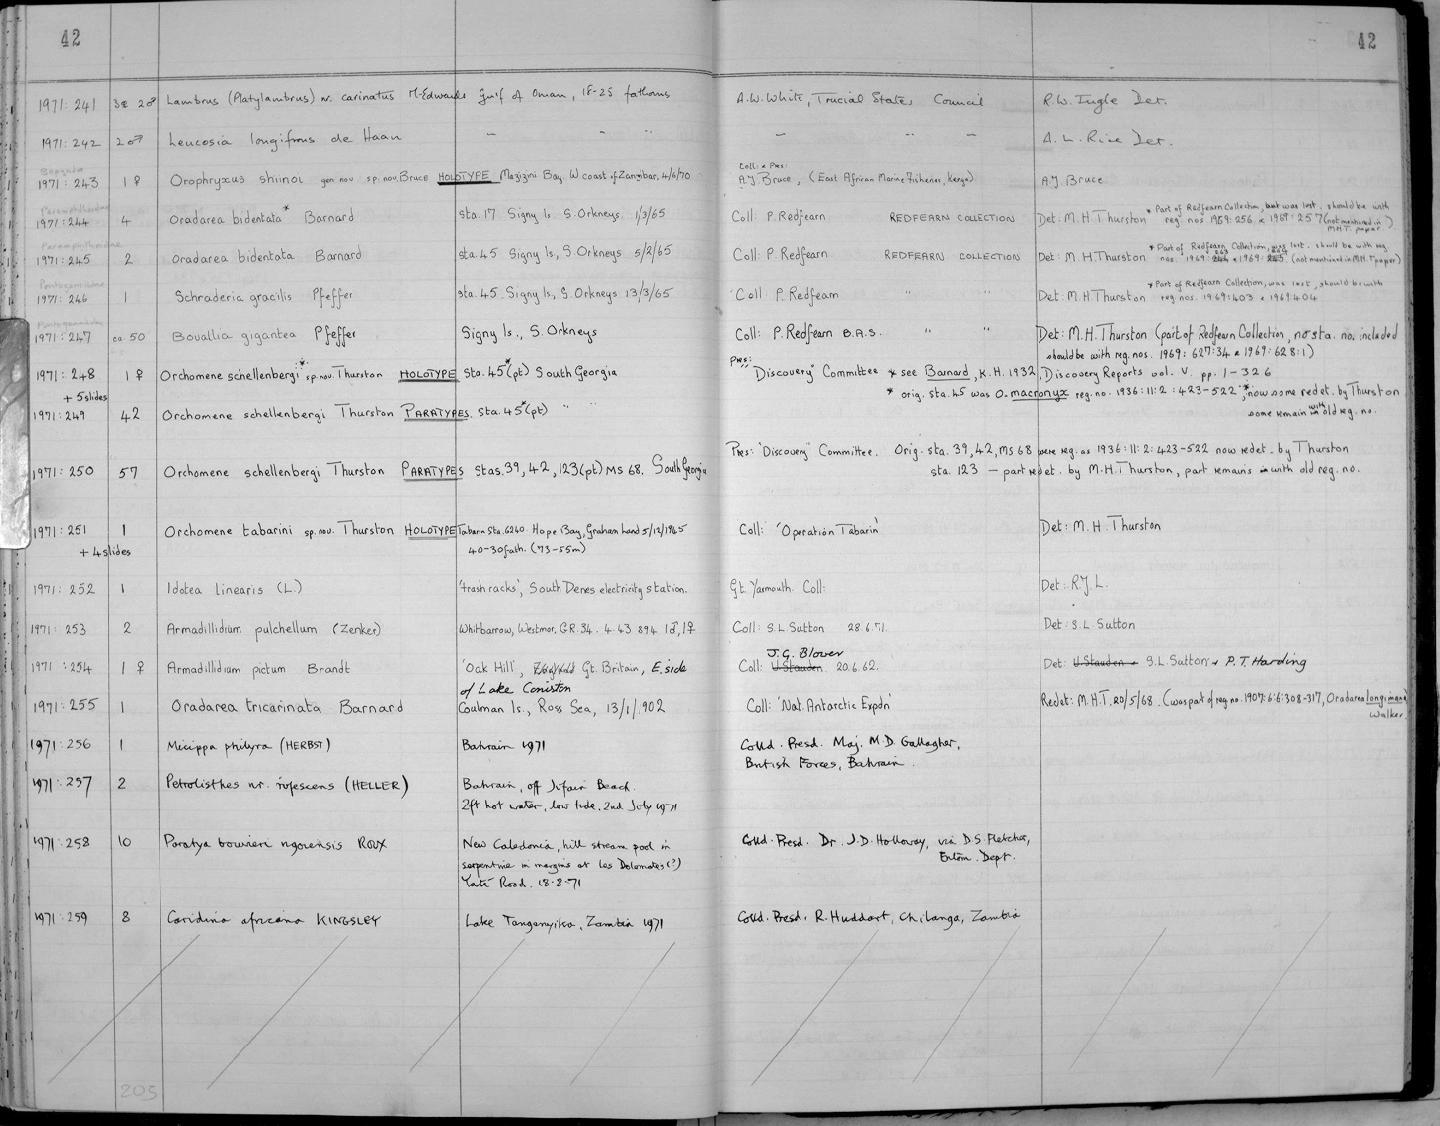 42
42
1971: 241 Lambrus (Platylambrus) nr. carinatus M-Edwards Gulf of Oman, 18-25 fathoms A.W. White, Trucial States Council R.W. Ingle Det.
1971: 242 2♂ Leucosia longifrons de Haan — — " — " — A. L. Rice Det.
Coll: & Pres:
1971: 243 1 ♀ Orophryxus shiinoi gen nov sp. nov. Bruce HOLOTYPE Mazizini Bay. W coast of Zanzibar, 4/6/70 A.J. Bruce, (East African Marine Fisheries, Kenya) A.J. Bruce
1971: 244 4 Oradarea bidentata* Barnard sta. 17 Signy Is. S. Orkneys 1/3/65 Coll: P. Redfearn REDFEARN COLLECTION Det: M. H. Thurston * Part of Redfearn Collection, but was lost, should be with
reg. nos. 1969: 256 & 1969: 257 (not mentioned in
MHT. paper)
1971: 245 2 Oradarea bidentata Barnard sta. 45 Signy Is., S. Orkneys 5/2/65 Coll: P. Redfearn REDFEARN COLLECTION Det: M. H. Thurston * Part of Redfearn Collection, was lost. should be with reg.
nos. 1969: & 1969: (not mentioned in M.H. T paper)
1971: 246 1 Schraderia gracilis Pfeffer sta. 45. Signy Is., S. Orkneys 13/3/65 Coll: P. Redfearn " " Det: M. H. Thurston * Part of Redfearn Collection, was lost, should be with
reg nos. 1969: 403 & 1969: 404
1971: 247 ca 50 Bovallia gigantea Pfeffer Signy Is., S. Orkneys Coll: P. Redfearn B.A.S. " " Det: M. H. Thurston (part of Redfearn Collection, no sta. no. included
should be with reg. nos. 1969: 627:34 & 1969: 628:1)
1971: 248 1 ♀ Orchomene schellenbergi* sp. nov. Thurston HOLOTYPE Sta. 45*(pt) South Georgia Pres: "Discovery" Committee * see Barnard, K. H. 1932, Discovery Reports vol. V. pp. 1-326
+ 5 slides * orig. sta. 45 was O. macronyx reg. no. 1936: 11: 2: 423-522 *, now some redet. by Thurston
1971: 249 42 Orchomene schellenbergi Thurston PARATYPES. sta. 45*(pt) " " some remain with old reg. no.
1971: 250 57 Orchomene schellenbergi Thurston PARATYPES stas. 39, 42, 123(pt) MS 68. South Georgia Pres: "Discovery" Committee. Orig. sta. 39, 42, MS 68 were reg. as 1936: 11: 2: 423-522 now redet. by Thurston
sta. 123 — part redet. by M. H. Thurston, part remains with old reg. no.
1971: 251 1 Orchomene tabarini sp. nov. Thurston HOLOTYPE Tabarin Sta. 6240. Hope Bay, Graham Land 5/12/1945 Coll: 'Operation Tabarin' Det: M. H. Thurston
+ 4 slides 40-30 fath. (73-55m)
1971: 252 1 Idotea linearis (L.) 'trash racks', South Denes electricity station. Gt. Yarmouth. Coll: Det: R.J. L.
1971: 253 2 Armadillidium pulchellum (Zenker) Whitbarrow, Westmor. G.R. 34. 4.43 894 1♂, 1♀ Coll: S. L. Sutton 28.6.71. Det: S. L. Sutton
J. G. Blower
1971: 254 1 ♀ Armadillidium pictum Brandt 'Oak Hill', Gt. Britain, E. side Coll: U. Stauden 20.6.62. Det: U. Stauden & S. L. Sutton & P. T. Harding
of Lake Coniston
1971: 255 1 Oradarea tricarinata Barnard Coulman Is., Ross Sea, 13/1/.902 Coll: 'Nat. Antarctic Expdn' Redet: M. H. T. 20/5/68. (was part of reg. no. 1907: 6: 6: 308-317, Oradarea longimana
Walker.
1971: 256 1 Micippa philyra (HERBST) Bahrain 1971 Colld. Presd. Maj. M. D. Gallagher,
British Forces, Bahrain.
1971: 257 2 Petrolisthes nr. rufescens (HELLER) Bahrain, off Jufair Beach.
2ft hot water, low tide, 2nd July 1971
1971: 258 10 Paratya bouvieri ngoensis ROUX New Caledonia, hill stream pool in Colld. Presd. Dr. J. D. Holloway, via D. S. Fletcher,
serpentine in margins at les Dolomates (?) Entom. Dept.
Yaté Road. 18-2-71
1971: 259 8 Caridina africana KINGSLEY Lake Tanganyika, Zambia 1971 Colld. Presd. R. Huddart, Chilanga, Zambia
205